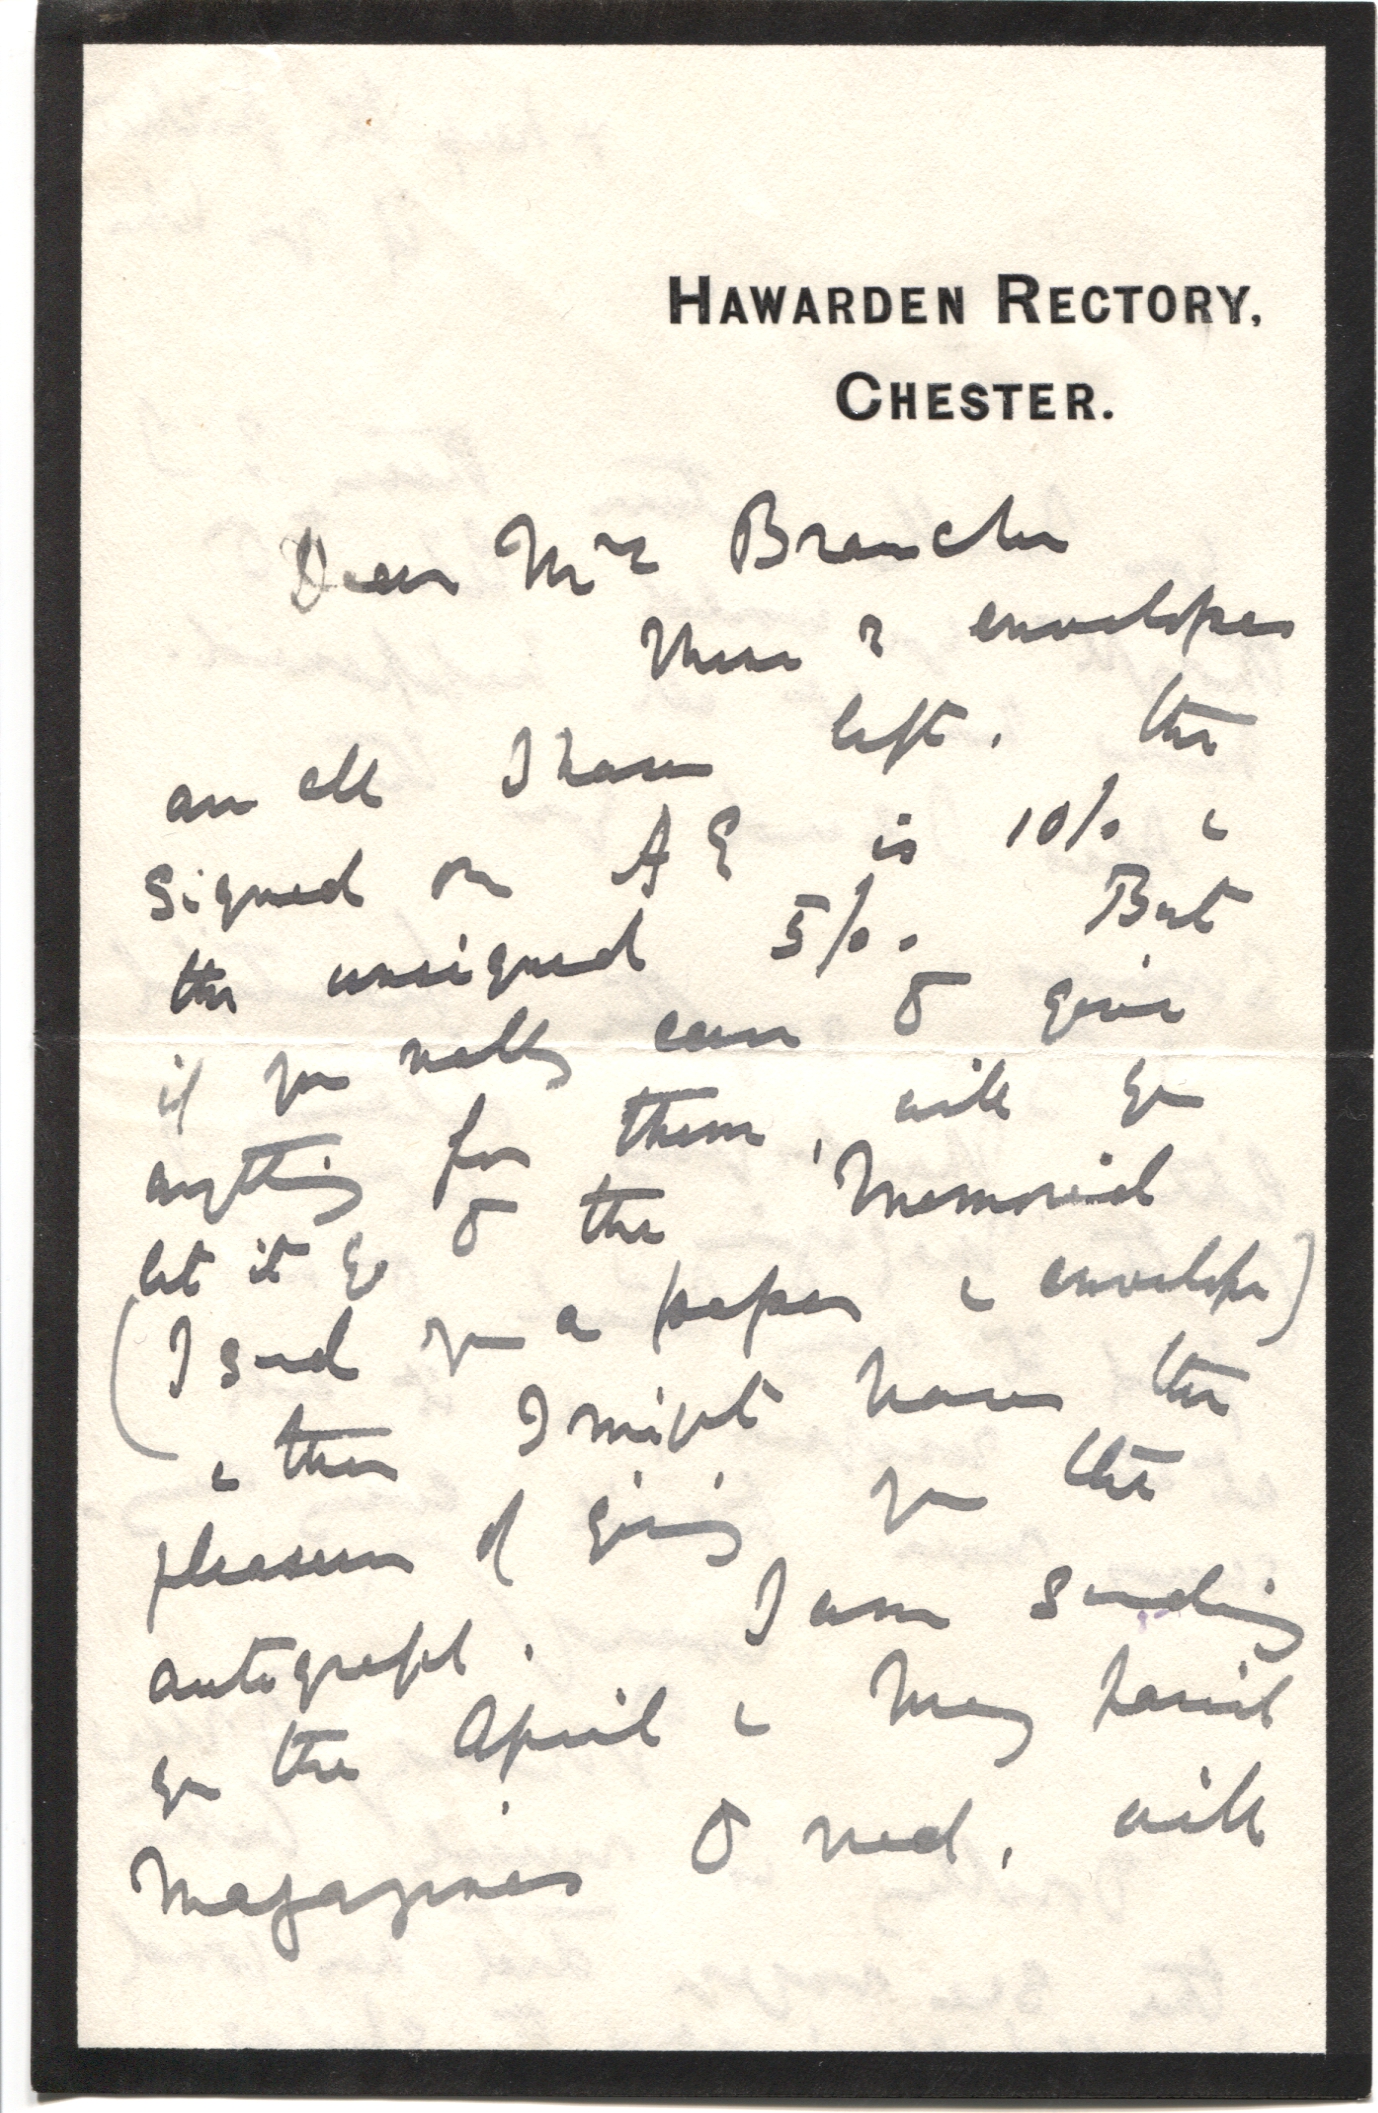 HAWARDEN RECTORY,
CHESTER.
Dear Mrs
These 2 envelopes
are all I have left. The
signed on is 10/. &
the unsigned 5/. . But
if you really care to give
anything for them, will you
let it go to the Memorial
(I send you a paper & envelope)
& then I might have the
pleasure of giving you the
autograph. I am sending
you the April & May
Magazines to read, will